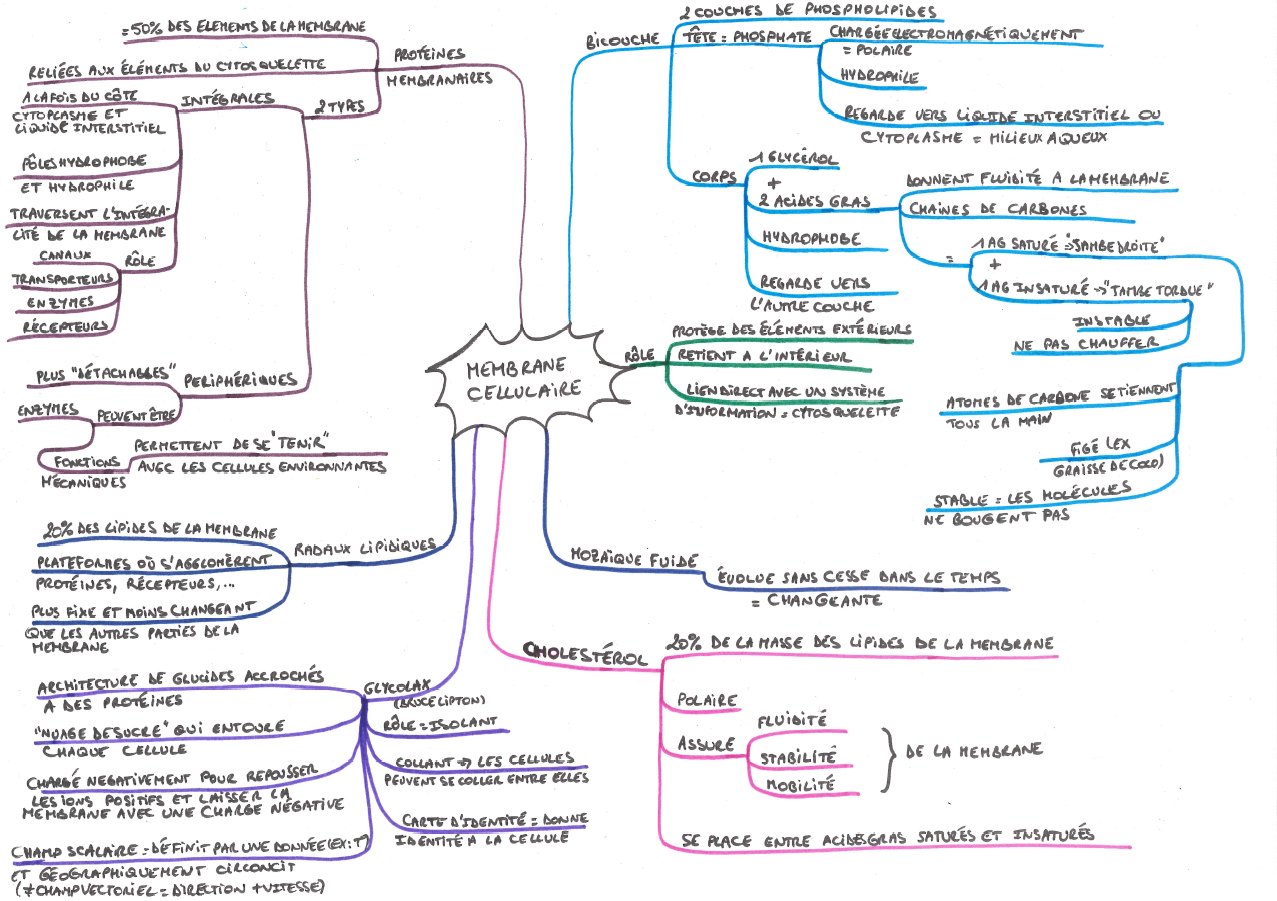 MEMBRANE
CELLULAIRE
PROTÉINES
MEMBRANAIRES
=50% DES ELEMENTS DE LA MEMBRANE
RELIÉES AUX ÉLÉMENTS DU CYTOSQUELETTE
2 TYPES
INTÉGRALES
A LA FOIS DU CÔTE
CYTOPLASME ET
LIQUIDE INTERSTITIEL
PÔLES HYDROPHOBE
ET HYDROPHILE
TRAVERSENT L'INTÉGRA-
LITÉ DE LA MEMBRANE
RÔLE
CANAUX
TRANSPORTEURS
ENZYMES
RÉCEPTEURS
PERIPHÉRIQUES
PLUS "DÉTACHABLES"
PEUVENT ÊTRE
ENZYMES
FONCTIONS
MÉCANIQUES
PERMETTENT DE SE "TENIR"
AVEC LES CELLULES ENVIRONNANTES
BICOUCHE
2 COUCHES DE PHOSPHOLIPIDES
TÊTE = PHOSPHATE
CHARGÉE ELECTROMAGNÉTIQUEMENT
= POLAIRE
HYDROPHILE
REGARDE VERS LIQUIDE INTERSTITIEL OU
CYTOPLASME = MILIEUX AQUEUX
CORPS
1 GLYCÉROL
+
2 ACIDES GRAS
HYDROPHOBE
REGARDE VERS
L'AUTRE COUCHE
DONNENT FLUIDITÉ A LA MEMBRANE
CHAÎNES DE CARBONES
=
1 AG SATURÉ => "JAMBE DROITE"
+
1 AG INSATURÉ => "JAMBE TORDUE"
INSTABLE
NE PAS CHAUFFER
ATOMES DE CARBONE SE TIENNENT
TOUS LA MAIN
FIGÉ (EX
GRAISSE DE COCO)
STABLE = LES MOLÉCULES
NE BOUGENT PAS
RÔLE
PROTÈGE DES ÉLÉMENTS EXTÉRIEURS
RETIENT A L'INTÉRIEUR
LIEN DIRECT AVEC UN SYSTÈME
D'INFORMATION = CYTOSQUELETTE
RADAUX LIPIDIQUES
20% DES LIPIDES DE LA MEMBRANE
PLATEFORMES OÙ S'AGGLOMÈRENT
PROTÉINES, RÉCEPTEURS,...
PLUS FIXE ET MOINS CHANGEANT
QUE LES AUTRES PARTIES DE LA
MEMBRANE
MOZAÏQUE FUIDE
ÉVOLUE SANS CESSE DANS LE TEMPS
= CHANGEANTE
GLYCOLAX
(BRUCE LIPTON)
ARCHITECTURE DE GLUCIDES ACCROCHÉS
A DES PROTÉINES
"NUAGE DE SUCRE" QUI ENTOURE
CHAQUE CELLULE
CHARGÉ NEGATIVEMENT POUR REPOUSSER
LES IONS POSITIFS ET LAISSER LA
MEMBRANE AVEC UNE CHARGE NÉGATIVE
CHAMP SCALAIRE = DÉFINIT PAR UNE DONNÉE (EX: T°)
ET GÉOGRAPHIQUEMENT CIRCONCIT
(≠ CHAMP VECTORIEL = DIRECTION + VITESSE)
RÔLE = ISOLANT
COLLANT => LES CELLULES
PEUVENT SE COLLER ENTRE ELLES
CARTE D'IDENTITÉ = DONNE
IDENTITÉ A LA CELLULE
CHOLESTÉROL
20% DE LA MASSE DES LIPIDES DE LA MEMBRANE
POLAIRE
ASSURE
FLUIDITÉ
STABILITÉ
MOBILITÉ
DE LA MEMBRANE
SE PLACE ENTRE ACIDES GRAS SATURÉS ET INSATURÉS